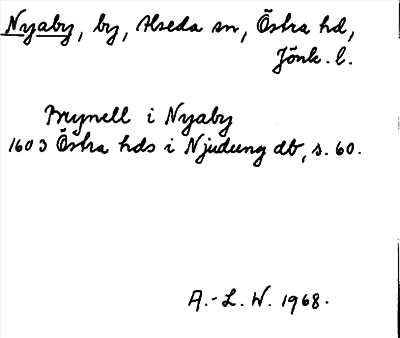 Nyaby, by, Alseda sn, Östra hd,
Jönk. l.
Brynell i Nyaby
1603 Östra hds i Njudung db, s. 60.
A.-L. W. 1968.